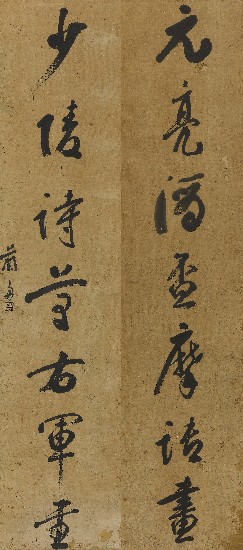 元亮酒盃摩詰畫
少陵詩草右軍書